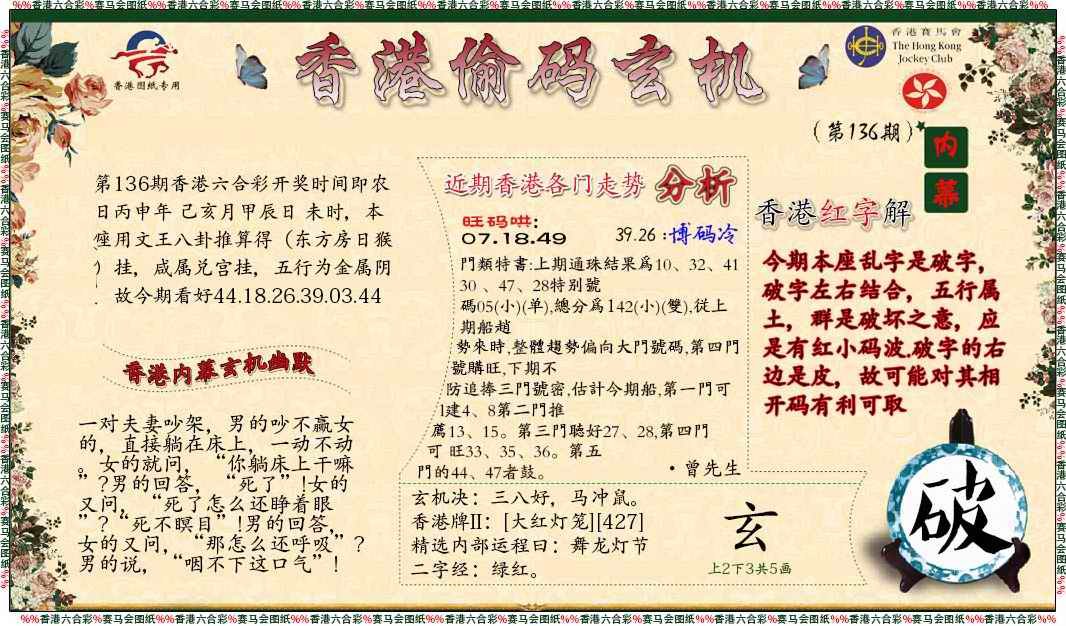 %%香港六合彩%赛马会图纸%%香港六合彩%赛马会图纸%%香港六合彩%赛马会图纸%%香港六合彩%赛马会图纸%%香港六合彩%赛马会图纸%%香港六合彩%赛马会图纸%%香港六合彩%赛马会图纸%%香港六合彩%%
香港图纸专用
香港偷码玄机
香港賽馬會
The Hong Kong
Jockey Club
（第136期）
内
幕
第136期香港六合彩开奖时间即农
日丙申年 己亥月甲辰日 未时，本
座用文王八卦推算得（东方房日猴
）挂，咸属兑宫挂，五行为金属阴
故今期看好44.18.26.39.03.44
香港内幕玄机幽默
一对夫妻吵架，男的吵不赢女
的，直接躺在床上，一动不动
。女的就问，“你躺床上干嘛
”?男的回答，“死了”!女的
又问，“死了怎么还睁着眼
”?“死不瞑目”!男的回答，
女的又问，“那怎么还呼吸”?
男的说，“咽不下这口气”!
近期香港各门走势 分析
旺码哄:
07.18.49
39.26 :博码冷
門類特書:上期通珠結果爲10、32、41
30 、47、28特别號
碼05(小)(单),總分爲142(小)(雙),從上
期船趙
勢來時,整體趨勢偏向大門號碼,第四門
號購旺,下期不
防追捧三門號密,估計今期船,第一門可
1建4、8第二門推
薦13、15。第三門聴好27、28,第四門
可 旺33、35、36。第五
門的44、47者鼓。
·曾先生
玄机决：三八好，马冲鼠。
香港牌II：[大红灯笼][427]
精选内部运程曰：舞龙灯节
二字经：绿红。
玄
上2下3共5画
香港红字解
今期本座乱字是破字，
破字左右结合，五行属
土，群是破坏之意，应
是有红小码波.破字的右
边是皮，故可能对其相
开码有利可取
破
%%香港六合彩%赛马会图纸%%香港六合彩%赛马会图纸%%香港六合彩%赛马会图纸%%香港六合彩%赛马会图纸%%香港六合彩%赛马会图纸%%香港六合彩%赛马会图纸%%香港六合彩%赛马会图纸%%香港六合彩%%